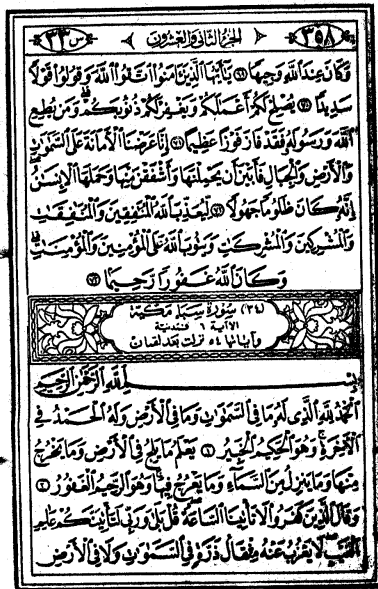 ٣٥٨ الجزء الثاني والعشرون س ٣٣
وَكَانَ عِندَ اللَّهِ وَجِيهًا ﴿٦٩﴾ يَٰٓأَيُّهَا الَّذِينَ ءَامَنُوا اتَّقُوا اللَّهَ وَقُولُوا قَوْلًا
سَدِيدًا ﴿٧٠﴾ يُصْلِحْ لَكُمْ أَعْمَٰلَكُمْ وَيَغْفِرْ لَكُمْ ذُنُوبَكُمْ وَمَن يُطِعِ
اللَّهَ وَرَسُولَهُ فَقَدْ فَازَ فَوْزًا عَظِيمًا ﴿٧١﴾ إِنَّا عَرَضْنَا الْأَمَانَةَ عَلَى السَّمَٰوَٰتِ
وَالْأَرْضِ وَالْجِبَالِ فَأَبَيْنَ أَن يَحْمِلْنَهَا وَأَشْفَقْنَ مِنْهَا وَحَمَلَهَا الْإِنسَٰنُ
إِنَّهُ كَانَ ظَلُومًا جَهُولًا ﴿٧٢﴾ لِيُعَذِّبَ اللَّهُ الْمُنَٰفِقِينَ وَالْمُنَٰفِقَٰتِ
وَالْمُشْرِكِينَ وَالْمُشْرِكَٰتِ وَيَتُوبَ اللَّهُ عَلَى الْمُؤْمِنِينَ وَالْمُؤْمِنَٰتِ
وَكَانَ اللَّهُ غَفُورًا رَحِيمًا ﴿٧٣﴾
(٣٤) سُورَةُ سَبَإٍ مَكِّيَّة
إلا آية ٦ فمدنية
وآياتها ٥٤ نزلت بعد لقمان
بِسْمِ اللَّهِ الرَّحْمَٰنِ الرَّحِيمِ
الْحَمْدُ لِلَّهِ الَّذِي لَهُ مَا فِي السَّمَٰوَٰتِ وَمَا فِي الْأَرْضِ وَلَهُ الْحَمْدُ فِي
الْآخِرَةِ وَهُوَ الْحَكِيمُ الْخَبِيرُ ﴿١﴾ يَعْلَمُ مَا يَلِجُ فِي الْأَرْضِ وَمَا يَخْرُجُ
مِنْهَا وَمَا يَنزِلُ مِنَ السَّمَآءِ وَمَا يَعْرُجُ فِيهَا وَهُوَ الرَّحِيمُ الْغَفُورُ ﴿٢﴾
وَقَالَ الَّذِينَ كَفَرُوا لَا تَأْتِينَا السَّاعَةُ قُلْ بَلَىٰ وَرَبِّي لَتَأْتِيَنَّكُمْ عَٰلِمِ
الْغَيْبِ لَا يَعْزُبُ عَنْهُ مِثْقَالُ ذَرَّةٍ فِي السَّمَٰوَٰتِ وَلَا فِي الْأَرْضِ